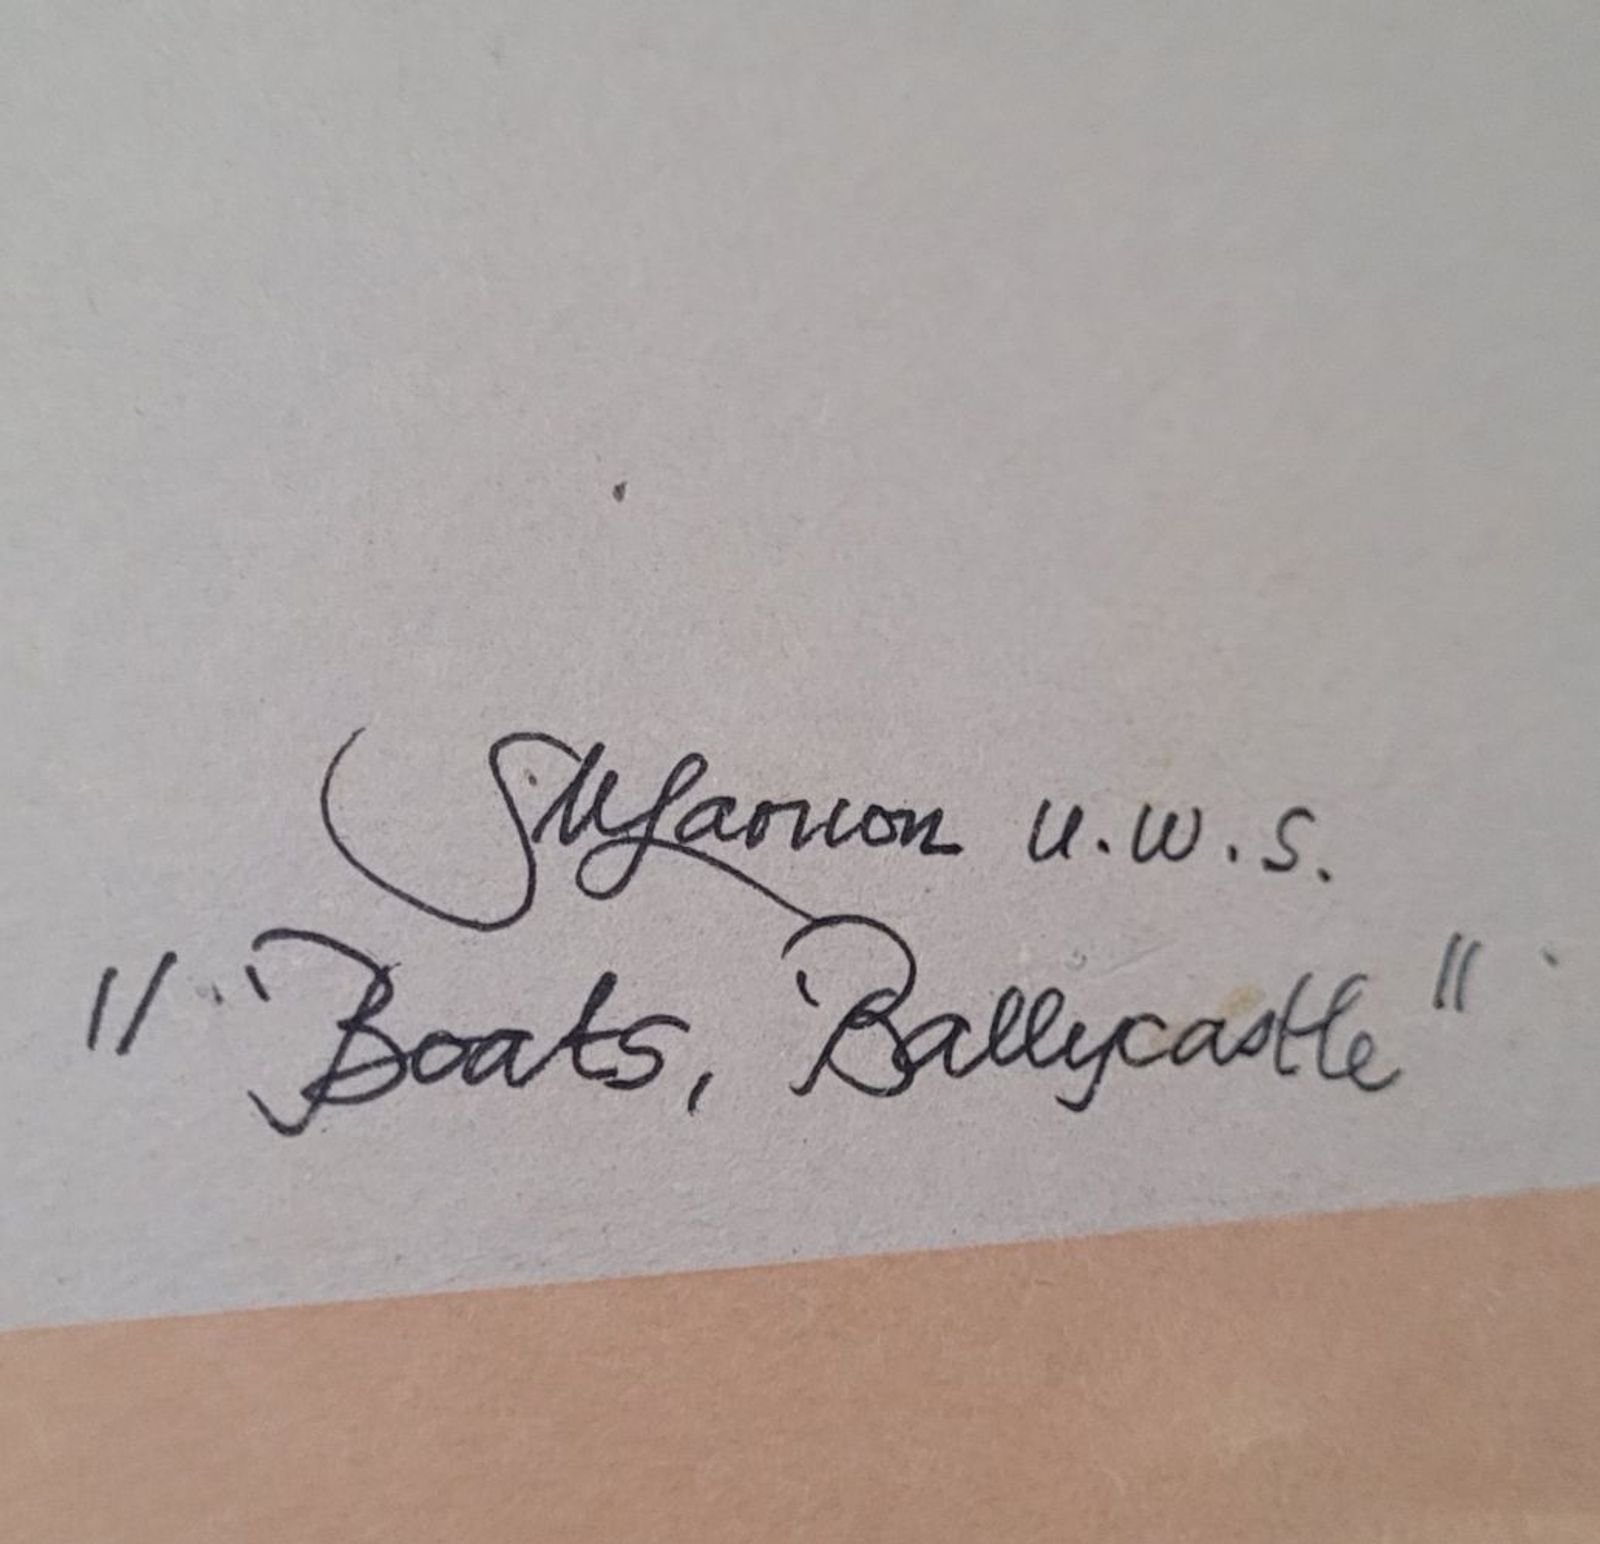 SMcLarnon U.W.S.
"Boats, Ballycastle"